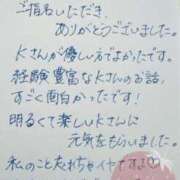 ご指名いただき、
ありがとうございました。
Kさんが優しい方でよかったです。
経験豊富なKさんのお話、
すごく面白かったです!
明るくて楽しいKさんに
元気をもらいました。
私のこと忘れちゃイヤですよ♡